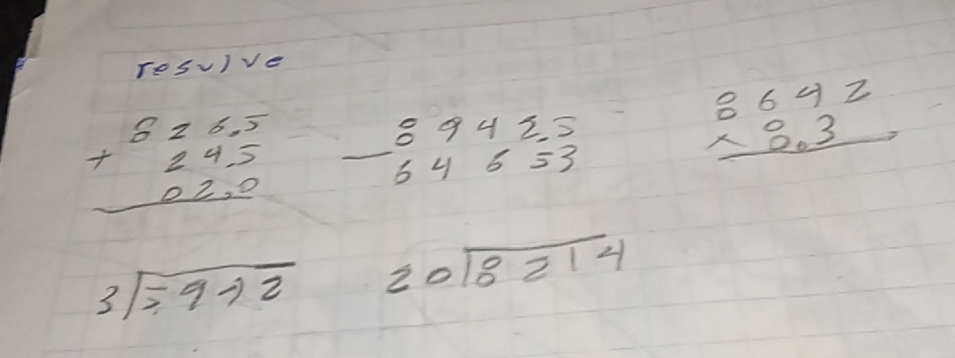 resulve
826.5
+ 24.5
02.0
8942.5
- 646 53
8642
× 8.3
20 8214